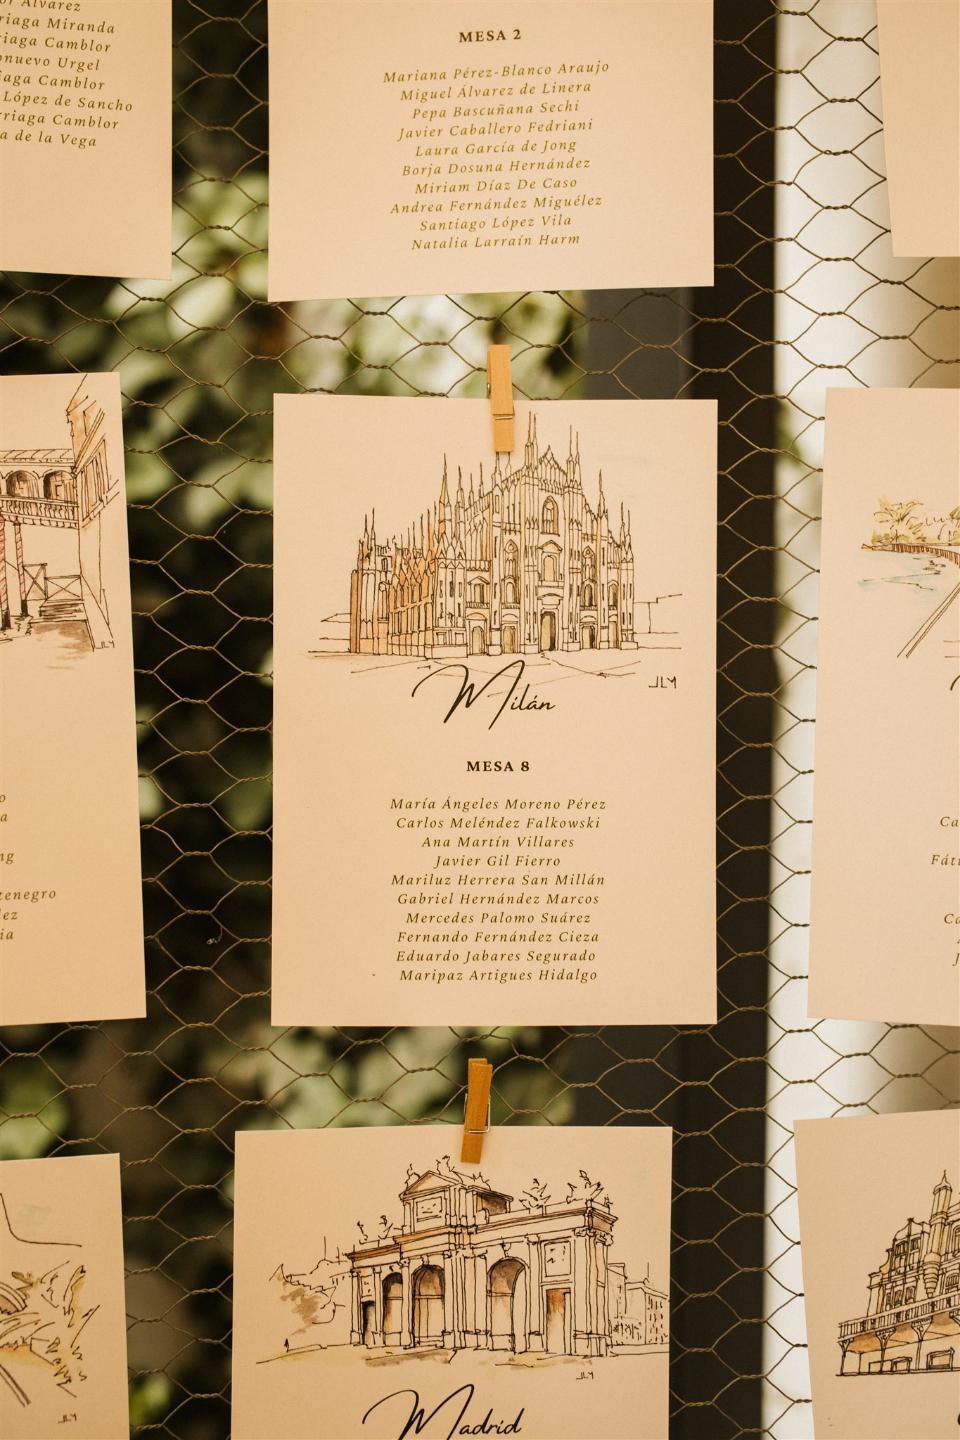 Álvarez
riaga Miranda
riaga Camblor
onuevo Urgel
iaga Camblor
López de Sancho
rriaga Camblor
a de la Vega
MESA 2
Mariana Pérez-Blanco Araujo
Miguel Álvarez de Linera
Pepa Bascuñana Sechi
Javier Caballero Fedriani
Laura García de Jong
Borja Dosuna Hernández
Miriam Díaz De Caso
Andrea Fernández Miguélez
Santiago López Vila
Natalia Larraín Harm
JLM
o
a
ng
tenegro
dez
ia
JLM
Milán
MESA 8
María Ángeles Moreno Pérez
Carlos Meléndez Falkowski
Ana Martín Villares
Javier Gil Fierro
Mariluz Herrera San Millán
Gabriel Hernández Marcos
Mercedes Palomo Suárez
Fernando Fernández Cieza
Eduardo Jabares Segurado
Maripaz Artigues Hidalgo
Ca
Fáti
Ca
J
JLM
JLM
Madrid